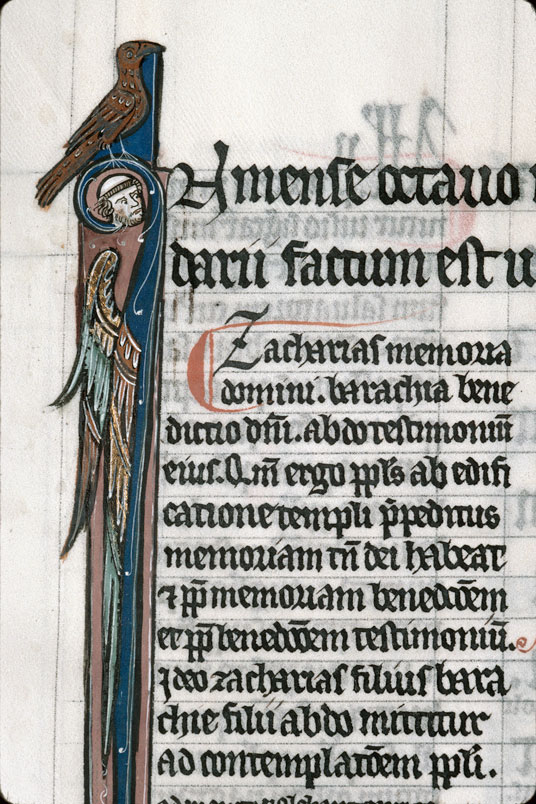 N mense octauo
darii factum est u
Zacharias memoria
domini. barachia bene
dictio dñi. Abdo testimoniũ
eius. Qm̃ ergo ppl̃s ab edifi
catione templi p̃peditus
memoriam tñ dei habeat
⁊ pp̃ memoriam benedcõem
et pp̃ benedcõem testimoniũ.
Ideo zacharias filius bara
chie filii abdo mittitur
ad contemplatõem ppl̃i.